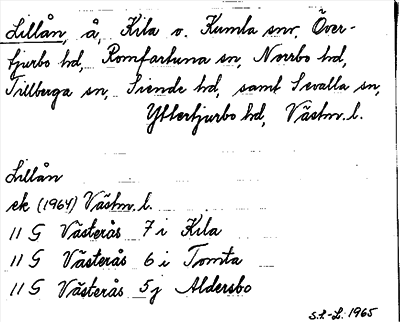 Lillån, å, Kila o. Kumla snr, Över-
tjurbo hd, Romfartuna sn, Norrbo hd,
Tillberga sn, Siende hd, samt Sevalla sn,
Yttertjurbo hd, Västm. l.
Lillån
ek (1964) Västm. l.
11 G Västerås 7 i Kila
11 G Västerås 6 i Tomta
11 G Västerås 5 j Aldersbo
S.L-L. 1965